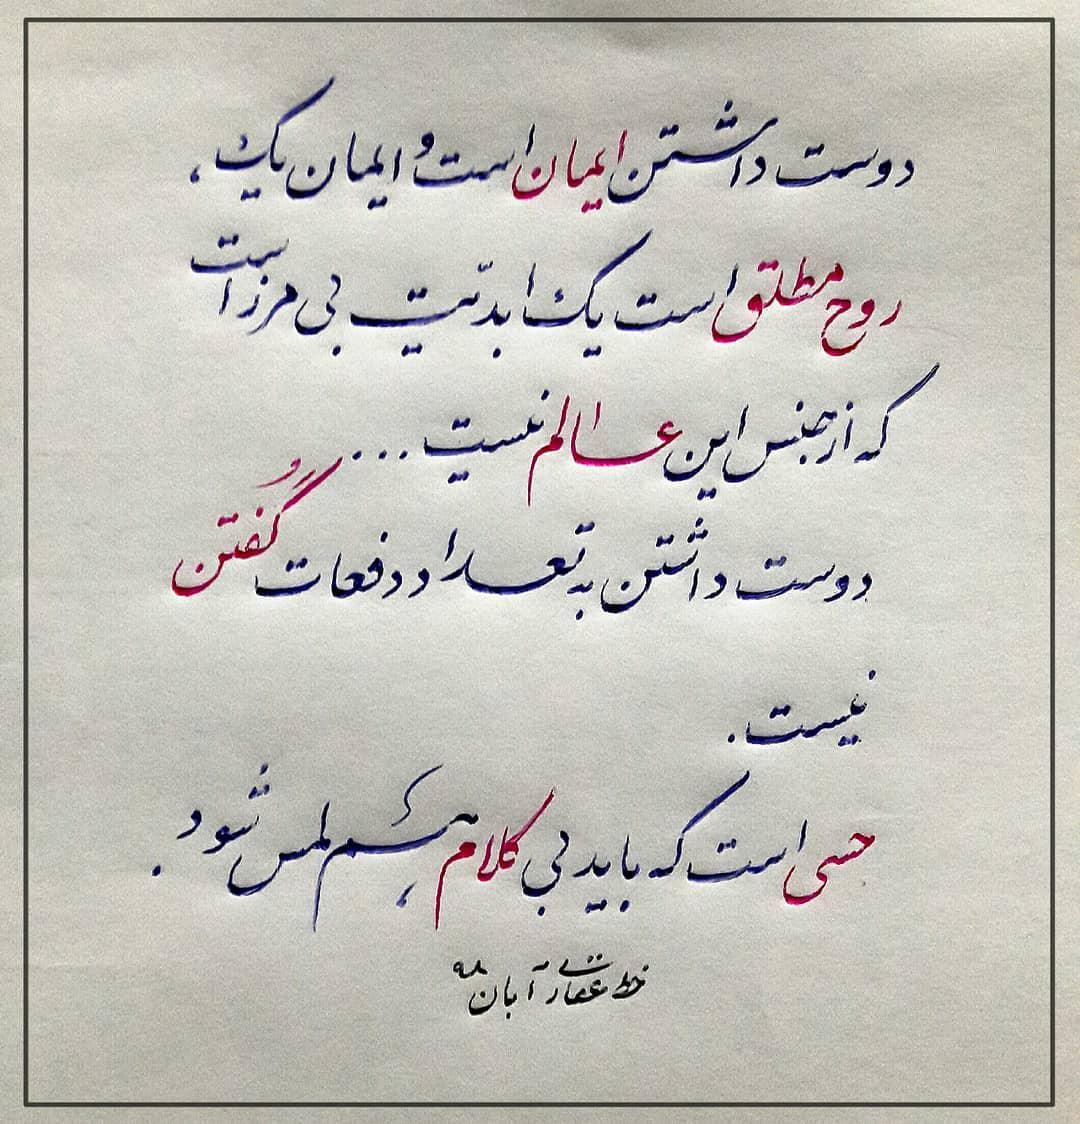 دوست داشتن ایمان است و ایمان یک،
روح مطلق است یک ابدیّت بی مرز است
که از جنس این عالم نیست...
دوست داشتن به تعداد دفعات گُفتن
نیست.
حسی است که باید بی کلام هم لمس شود.
خط آبان ۹۸